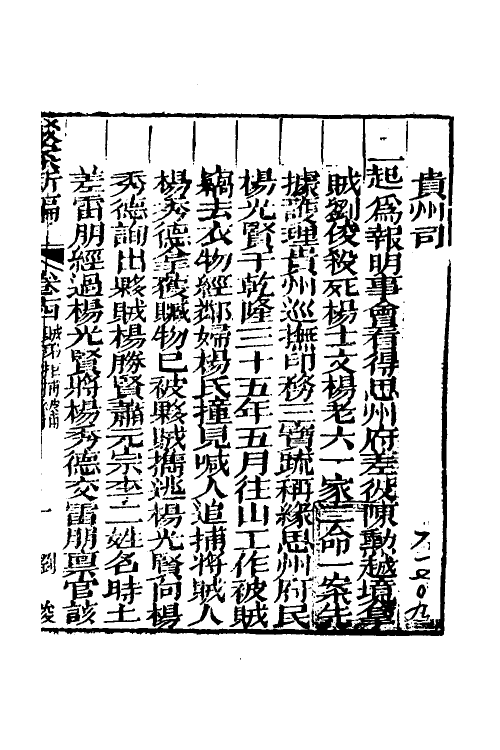 貴州司
一起為報明事會看得思州府差役陳勳越境拿
賊劉俊殺死楊士文楊老六一家三命一案先
據護理貴州巡撫印務三寶疏稱緣思州府民
楊光賢于乾隆三十五年五月往山工作被賊
竊去衣物經鄰婦楊氏撞見喊人追捕將賊人
楊秀德拿獲贓物已被夥賊攜逃楊光賢向楊
秀德詢出夥賊楊勝賢蕭元宗李二姓名時土
差雷朋經過楊光賢將楊秀德交雷朋稟官該
新編 卷十四
一 劉俊